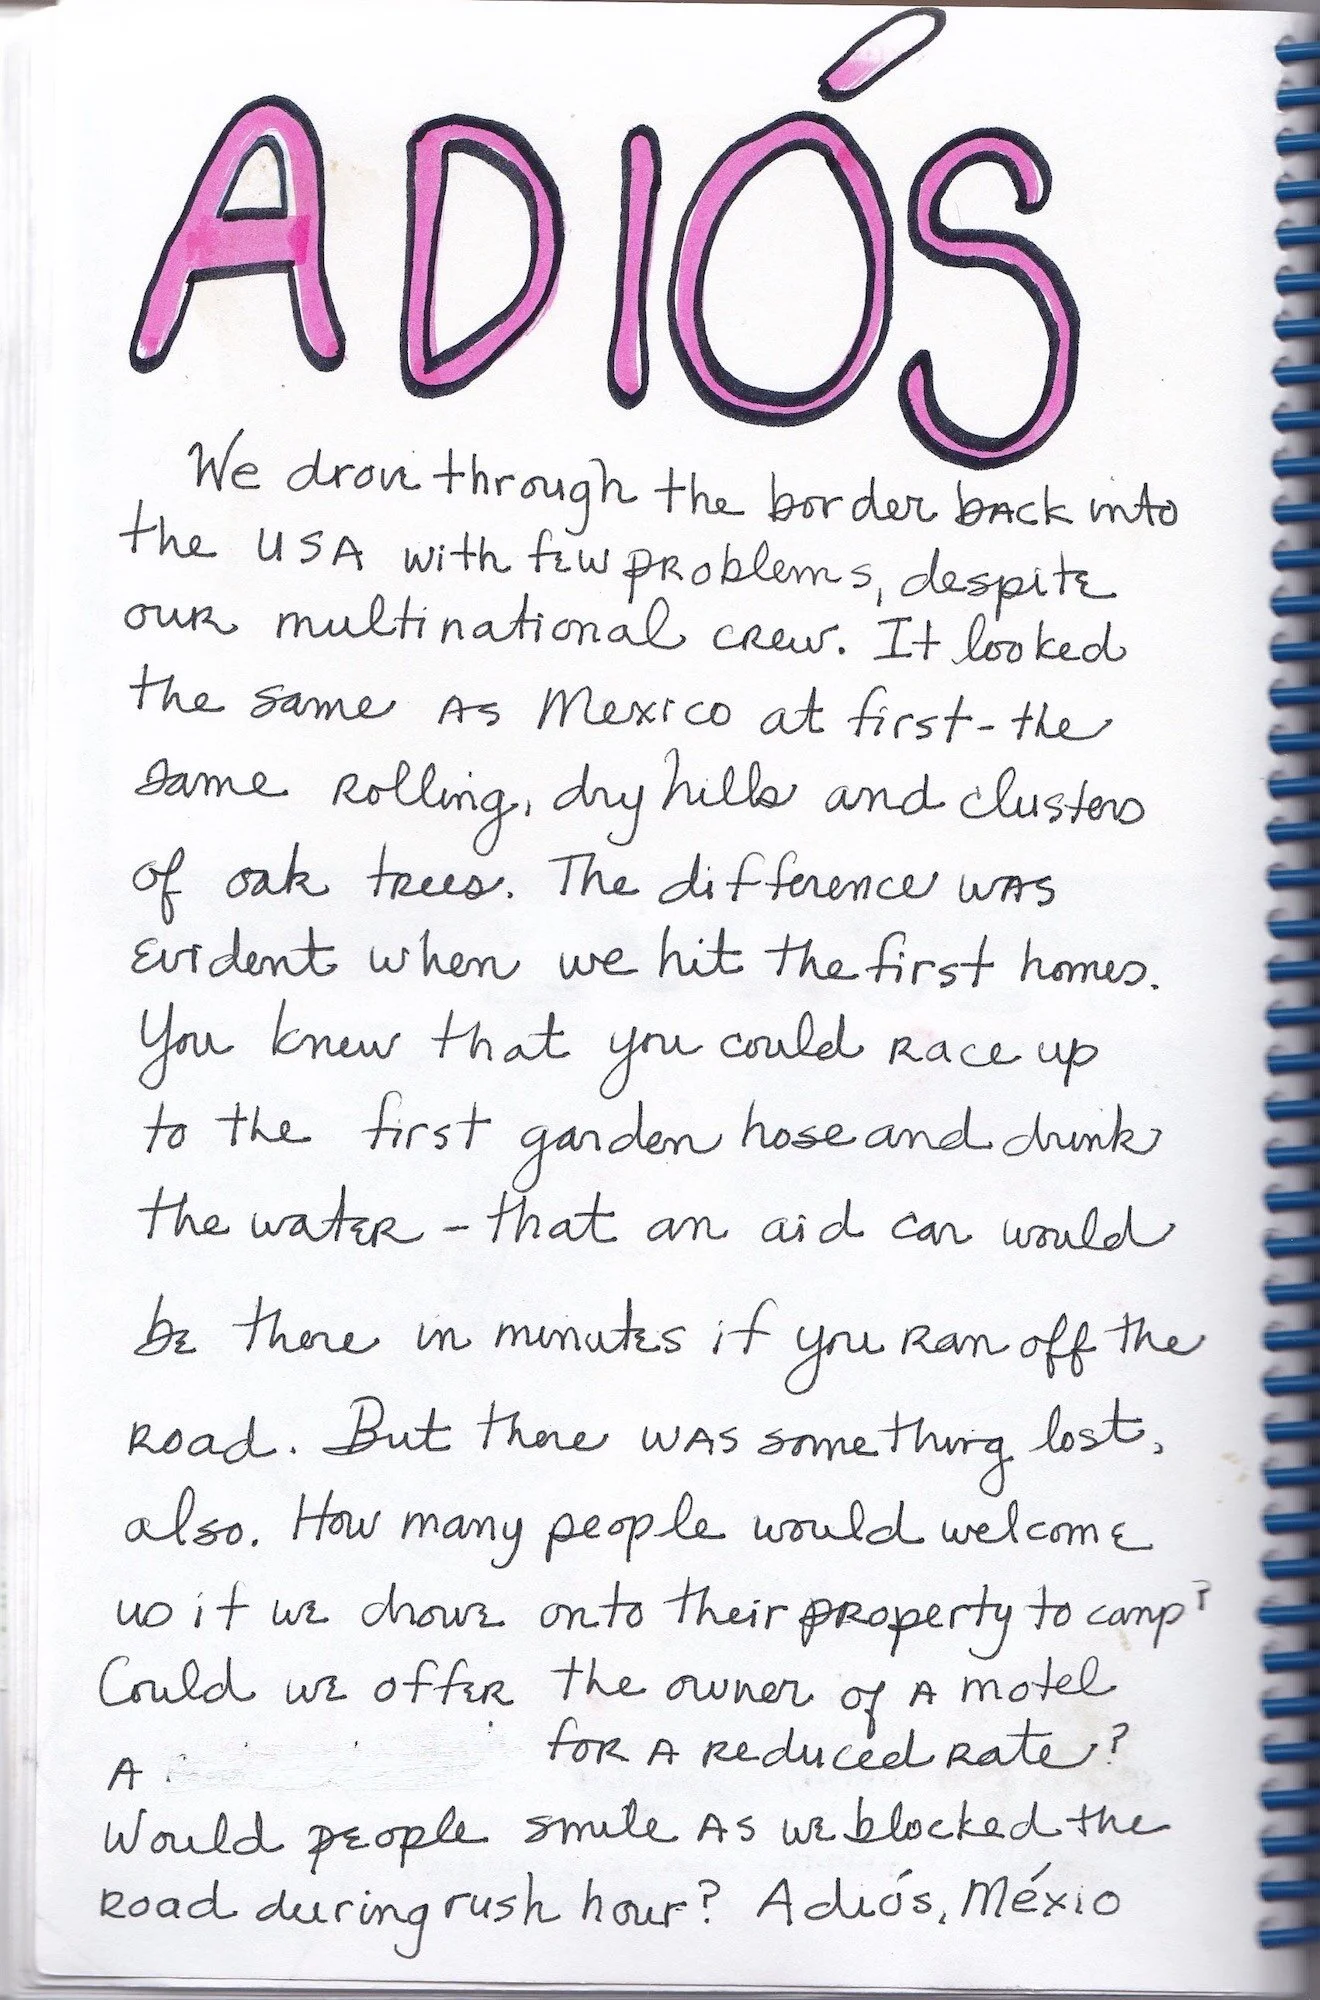 ADIÓS
We drove through the border back into
the USA with few problems, despite
our multinational crew. It looked
the same as Mexico at first - the
same rolling, dry hills and clusters
of oak trees. The difference was
evident when we hit the first homes.
You knew that you could race up
to the first garden hose and drink
the water - that an aid car would
be there in minutes if you ran off the
road. But there was something lost,
also. How many people would welcome
us if we drove onto their property to camp?
Could we offer the owner of a motel
A for a reduced rate?
Would people smile as we blocked the
road during rush hour? Adiós, Méxio